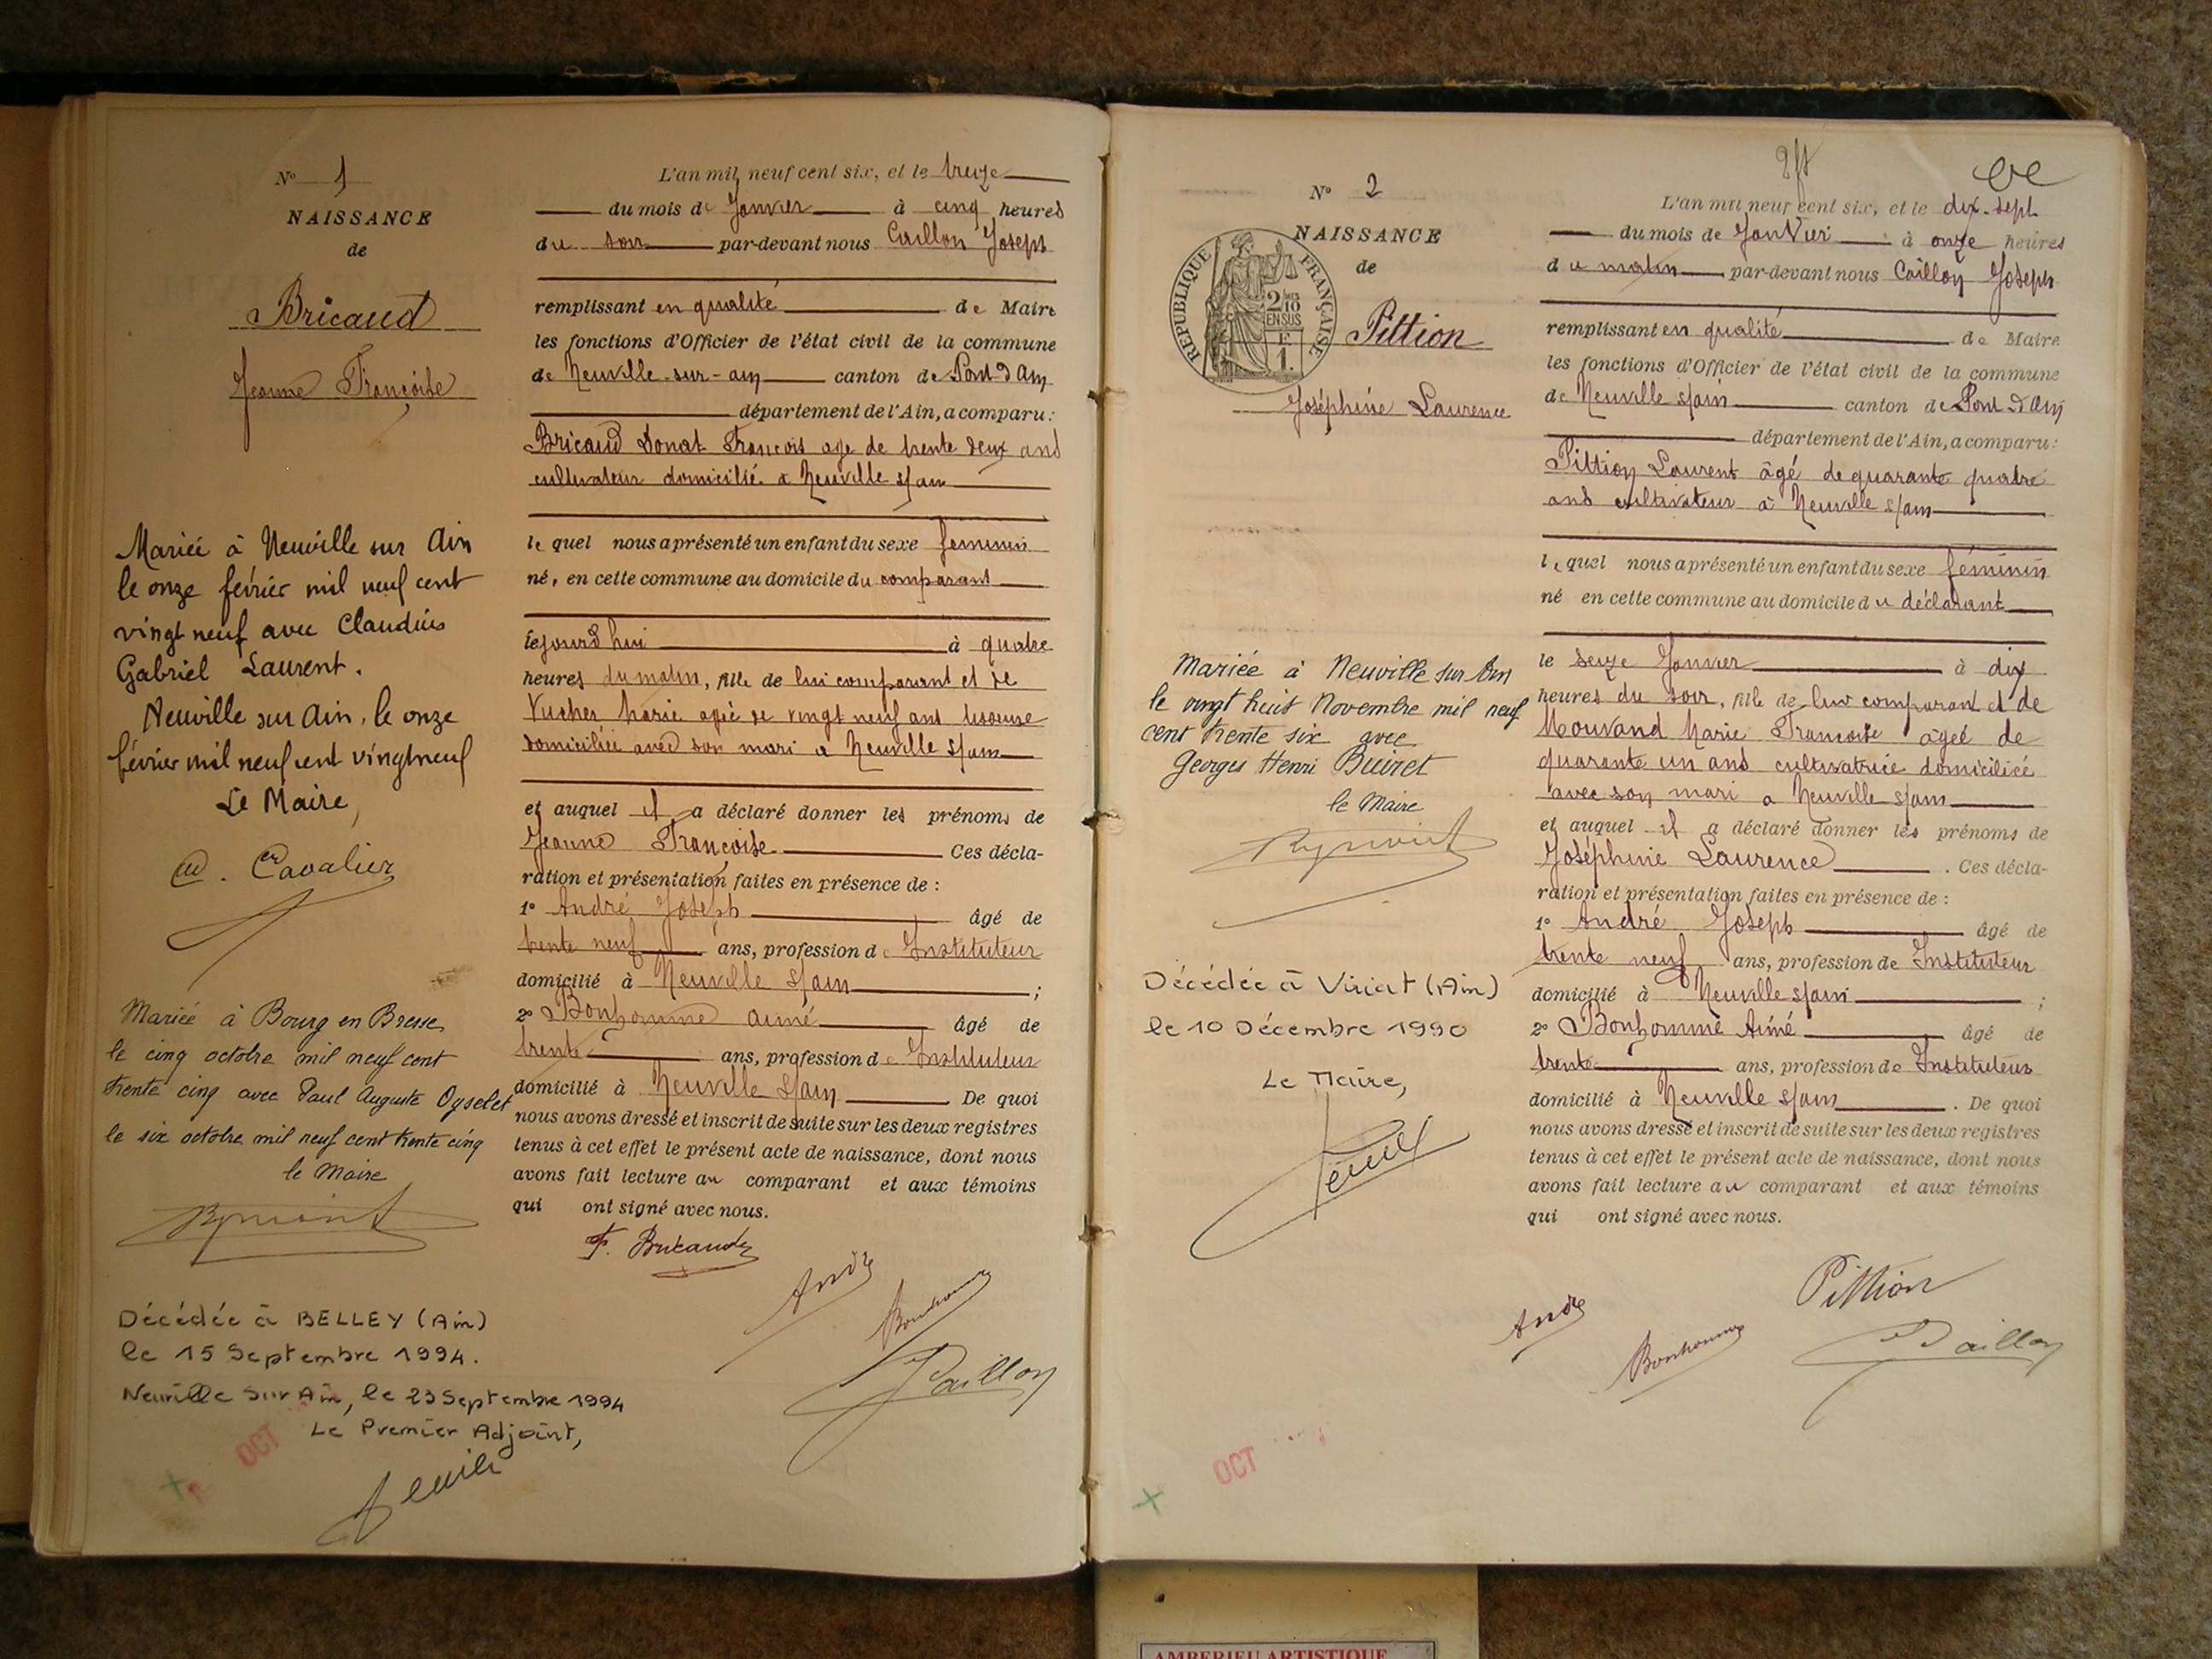 N° 1
NAISSANCE
de
Bricaud
Jeanne Françoise
Mariée à Neuville sur Ain
le onze février mil neuf cent
vingt neuf avec Claudius
Gabriel Laurent.
Neuville sur Ain, le onze
février mil neuf cent vingt neuf
Le Maire,
Cavalier
Mariée à Bourg en Bresse
le cinq octobre mil neuf cent
trente cinq avec Paul Auguste Oyselet
le six octobre mil neuf cent trente cinq
le Maire
Décédée à BELLEY (Ain)
le 15 Septembre 1994.
Neuville Sur Ain, le 23 Septembre 1994
Le Premier Adjoint,
OCT
L'an mil neuf cent six, et le treize
du mois de Janvier à cinq heures
du soir par-devant nous Caillon Joseph
remplissant en qualité de Maire
les fonctions d'Officier de l'état civil de la commune
de Neuville-sur-ain canton de Pont d'Ain
département de l'Ain, a comparu:
Bricaud Donat François age de trente deux ans
cultivateur domicilié a Neuville s/ain
le quel nous a présenté un enfant du sexe féminin
né, en cette commune au domicile du comparant
lejourd'hui à quatre
heures du matin, fille de lui comparant et de
Vucher Marie agée de vingt neuf ans
domiciliée avec son mari a Neuville s/ain
et auquel il a déclaré donner les prénoms de
Jeanne Françoise Ces décla-
ration et présentation faites en présence de :
1° André Joseph âgé de
trente neuf ans, profession de Instituteur
domicilié à Neuville s/ain ;
2° Bonhomme aimé âgé de
trente ans, profession de Instituteur
domicilié à Neuville s/ain De quoi
nous avons dressé et inscrit de suite sur les deux registres
tenus à cet effet le présent acte de naissance, dont nous
avons fait lecture au comparant et aux témoins
qui ont signé avec nous.
F. Bricaud
André
Bonhomme
Caillon
N° 2
NAISSANCE
de
RÉPUBLIQUE FRANÇAISE
2/10
EN SUS
F
1.
Pittion
Joséphine Laurence
Mariée à Neuville sur Ain
le vingt huit Novembre mil neuf
cent trente six avec
Georges Henri Buiret
le Maire
Décédée à Viriat (Ain)
le 10 Décembre 1990
Le Maire,
OCT
L'an mil neuf cent six, et le dix-sept
du mois de Janvier à onze heures
du matin par-devant nous Caillon Joseph
remplissant en qualité de Maire
les fonctions d'Officier de l'état civil de la commune
de Neuville s/ain canton de Pont d'Ain
département de l'Ain, a comparu:
Pittion Laurent âgé de quarante quatre
ans cultivateur à Neuville s/ain
le quel nous a présenté un enfant du sexe féminin
né en cette commune au domicile du déclarant
le seize Janvier à dix
heures du soir, fille de lui comparant et de
Mouvand Marie Françoise âgée de
quarante un ans cultivatrice domiciliée
avec son mari a Neuville s/ain
et auquel il a déclaré donner les prénoms de
Joséphine Laurence . Ces décla-
ration et présentation faites en présence de :
1° André Joseph âgé de
trente neuf ans, profession de Instituteur
domicilié à Neuville s/ain ;
2° Bonhomme Aimé âgé de
trente ans, profession de Instituteur
domicilié à Neuville s/ain . De quoi
nous avons dressé et inscrit de suite sur les deux registres
tenus à cet effet le présent acte de naissance, dont nous
avons fait lecture au comparant et aux témoins
qui ont signé avec nous.
Pittion
André
Bonhomme
Caillon
AMBERIEU ARTISTIQUE